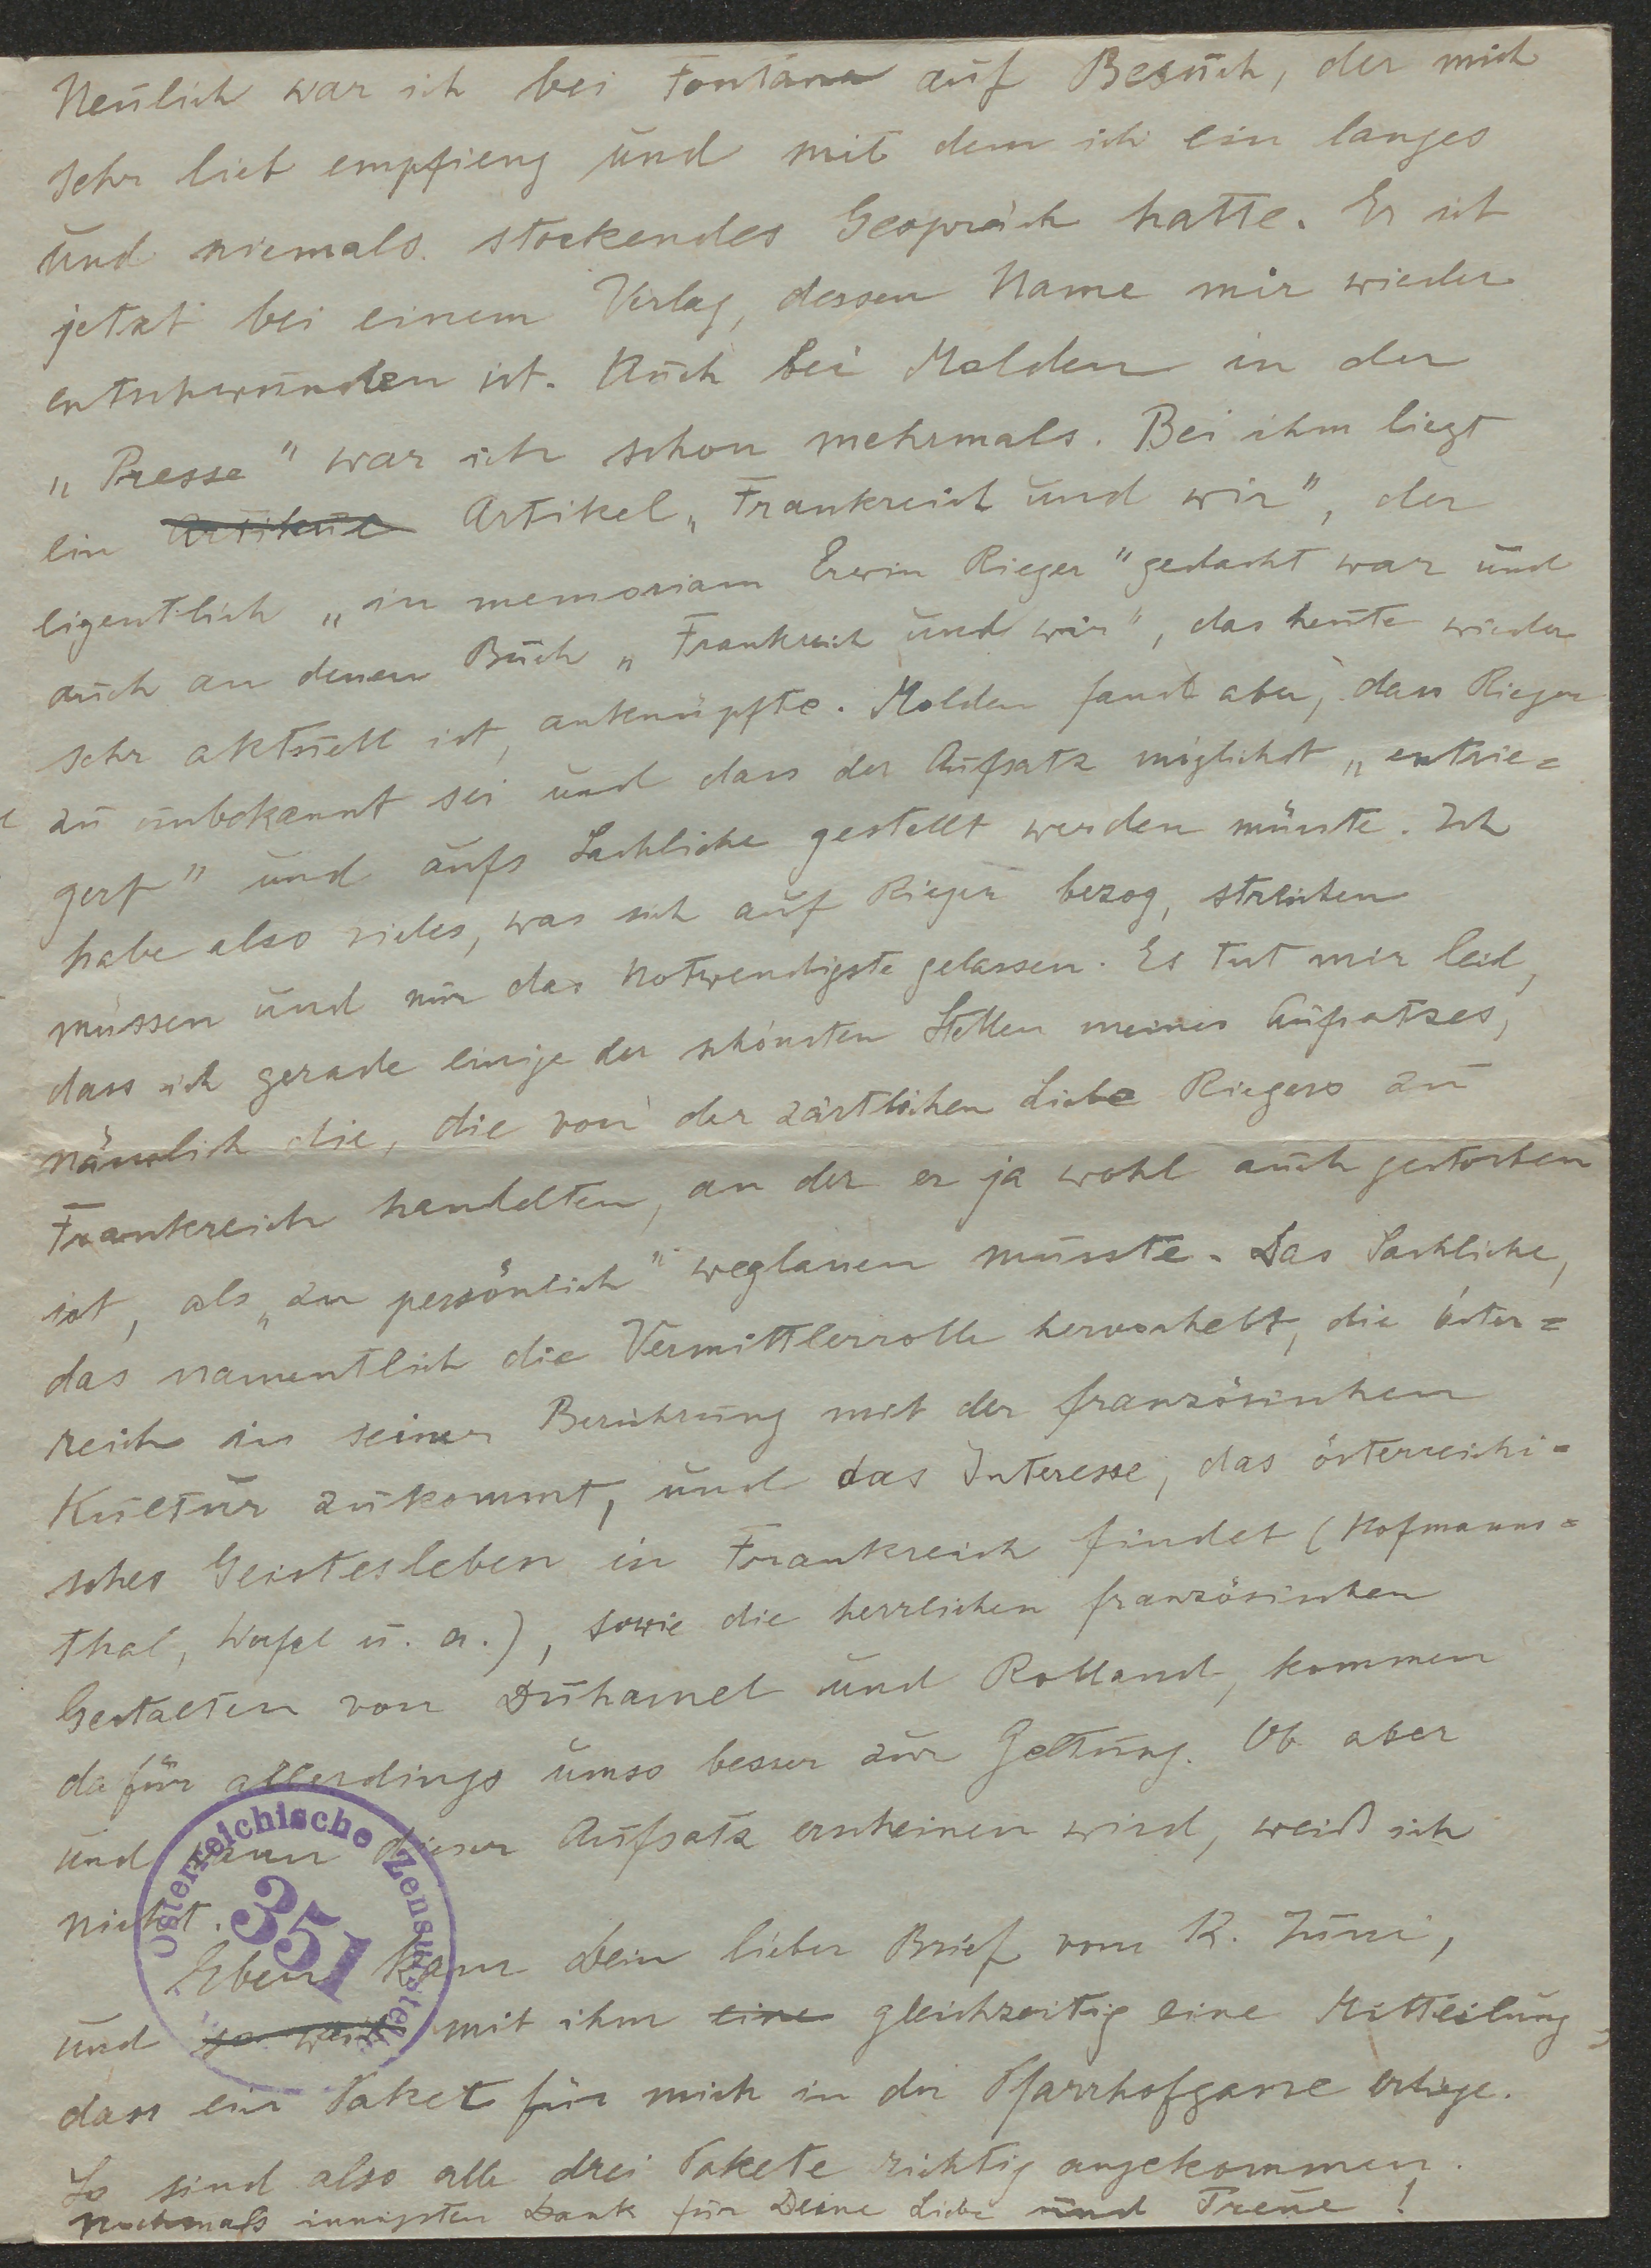 Neulich war ich bei Fontana auf Besuch, der mich
sehr lieb empfieng und mit dem ich ein langes
und niemals stockendes Gespräch hatte. Er ist
jetzt bei einem Verlag, dessen Name mir wieder
entschwunden ist. Auch bei Molden in der
„Presse" war ich schon mehrmals. Bei ihm liegt
ein Artikel „Frankreich und wir", der
eigentlich „in memoriam Erwin Rieger" gedacht war und
auch an denen Buch „Frankreich und wir", das heute wieder
sehr aktuell ist, anknüpfte. Molden fand aber, dass Rieger
zu unbekannt sei und dass der Aufsatz möglichst „entrie=
gert" und aufs Sachliche gestellt werden müsste. Ich
habe also vieles, was sich auf Rieger bezog, streichen
müssen und nur das Notwendigste gelassen. Es tut mir leid,
dass ich gerade einige der schönsten Stellen meines Aufsatzes,
nämlich die, die von der zärtlichen Liebe Riegers zu
Frankreich handelten, an der er ja wohl auch gestorben
ist, als „zu persönlich" weglassen musste. Das Sachliche,
das namentlich die Vermittlerrolle hervorhebt, die Öster=
reich in seiner Berührung mit der französischen
Kultur zukommt, und das Interesse, das österreichi=
sches Geistesleben in Frankreich findet (Hofmanns=
thal, Werfel u. a.), sowie die herrlichen französischen
Gestalten von Duhamel und Rolland, kommen
dafür allerdings umso besser zur Geltung. Ob aber
und wann dieser Aufsatz erscheinen wird, weiß ich
nicht.
Eben kam Dein lieber Brief vom 12. Juni,
und mit ihm eine gleichzeitig eine Mitteilung,
dass ein Paket für mich in der Pfarrhofgasse erliege.
So sind also alle drei Pakete richtig angekommen.
Nochmals innigsten Dank für Deine Liebe und Treue!
Österreichische Zensurstelle
351